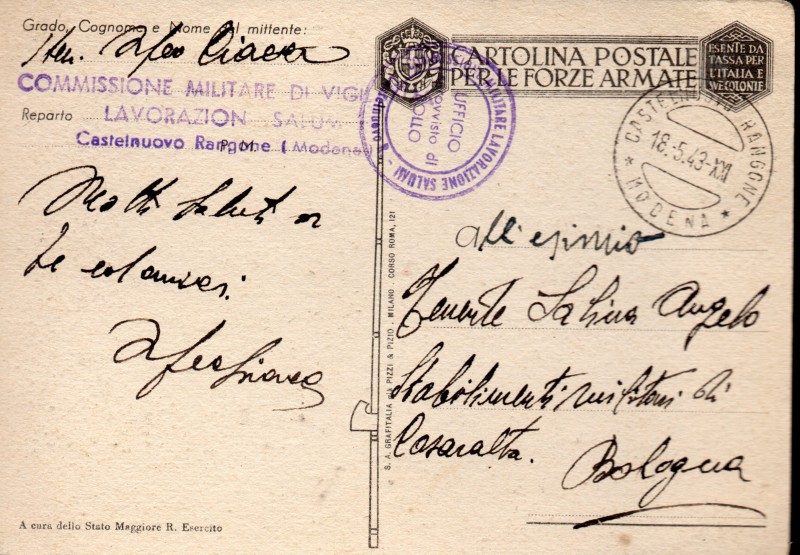 Grado, Cognome e Nome del mittente:
COMMISSIONE MILITARE DI VIGI
Reparto LAVORAZION SALUMI
Castelnuovo Rangone (Modena)
P. M.
Molti saluti a
te e
A cura dello Stato Maggiore R. Esercito
S. A. GRAFITALIA già PIZZI & PIZIO - MILANO CORSO ROMA, 121
MILITARE LAVORAZIONE SALUMI
UFFICIO
provvisto di
BOLLO
CARTOLINA POSTALE
PER LE FORZE ARMATE
ESENTE DA
TASSA PER
L'ITALIA E
LE COLONIE
CASTELNUOVO RANGONE
18.5.43-XXI
* MODENA *
all'esimio
Tenente Salina Angelo
Stabilimenti militari di
Casaralta.
Bologna